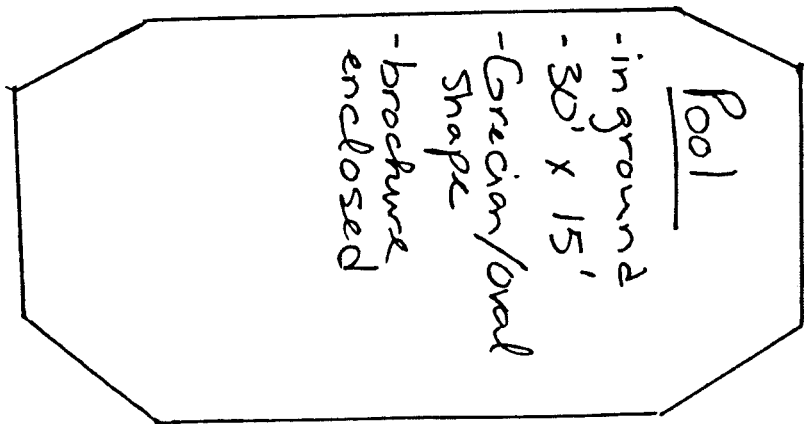 Pool
- in ground
- 30' x 15'
- Grecian/oval
shape
- brochure
enclosed